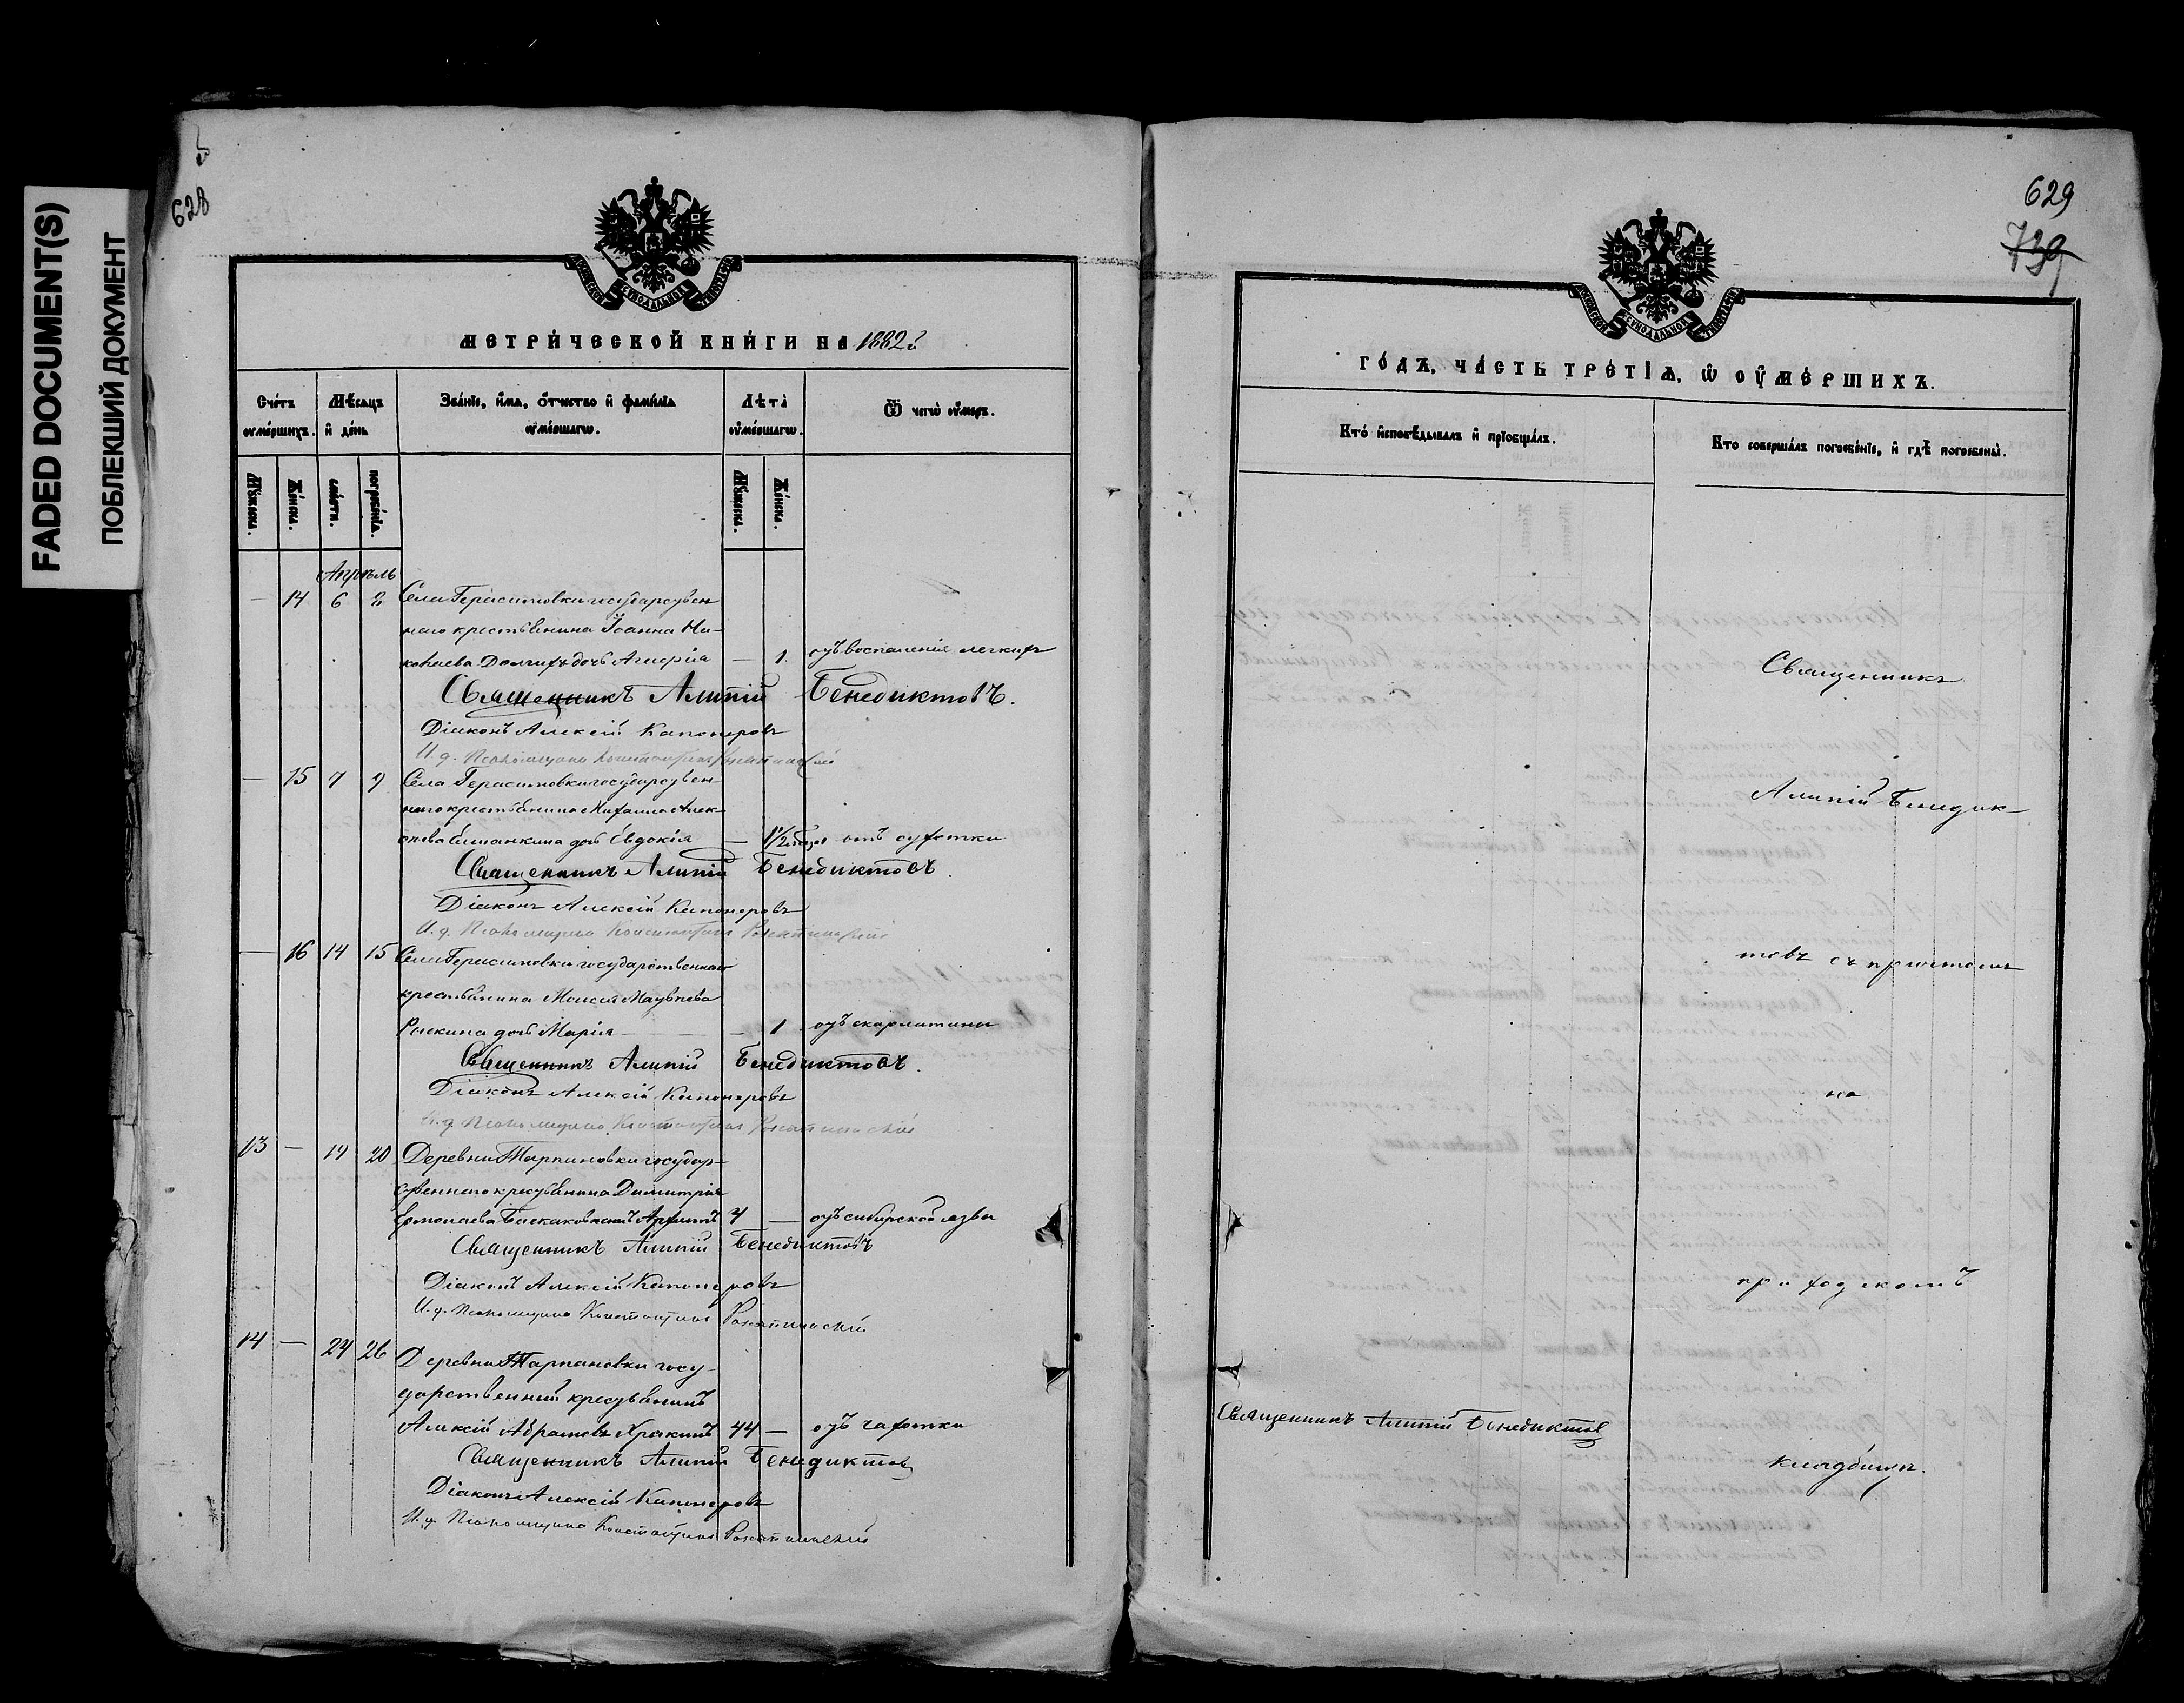 FADED DOCUMENT(S)
ПОБЛЕКШИЙ ДОКУМЕНТ
628
МЕТРИЧЕСКОЙ КНИГИ НА 1882й
Счетъ умершихъ.
Мѣсяцъ и день
Званіе, имя, отчество и фамилія умершагω.
Лѣта умершагω.
Ѿ чегω умеръ.
Мужеска.
Женска.
смерти.
погребенія.
Мужеска.
Женска.
Апрѣль
— 14 6 8 Села Герасимовки государствен
наго крестьянина Іоанна Ни-
колаева Долгихъ дочь — 1. отъ воспаленія легкихъ
Священникъ Алипій Бенедиктовъ.
Діаконъ Алексій Капонеровъ
И. д. Псаломщика Константинъ
— 15 7 9 Села Герасимовки государствен-
наго крестьянина Михаила Алек-
дочь Евдокія — 1½ года отъ сухотки
Священникъ Алипій Бенедиктовъ.
Діаконъ Алексій Капонеровъ
И. д. Псаломщика Константинъ
— 16 14 15 Села Герасимовки государственнаго
крестьянина Моисея Матвѣева
Раскина дочь Марія — 1 отъ скарлатины
Священникъ Алипій Бенедиктовъ.
Діаконъ Алексій Капонеровъ
И. д. Псаломщика Константинъ
13 — 19 20 Деревни Тарпановки государ-
ственнаго крестьянина Димитрія
Ермолаева 4 — отъ сибирской язвы
Священникъ Алипій Бенедиктовъ
Діаконъ Алексій Капонеровъ
И. д. Псаломщика Константинъ
14 — 24 26 Деревни Тарпановки госу-
дарственный крестьянинъ
Алексій Абрамовъ 44 — отъ чахотки
Священникъ Алипій Бенедиктовъ
Діаконъ Алексій Капонеровъ
И. д. Псаломщика Константинъ
629
739
ГОДЪ, ЧАСТЬ ТРЕТІЯ, Ѡ УМЕРШИХЪ.
Кто исповѣдывалъ и пріобщалъ.
Кто совершалъ погребеніе, и гдѣ погребены.
Священникъ
Алипій Бенедик-
товъ съ причтомъ
на
приходскомъ
Священникъ Алипій Бенедиктовъ
кладбищѣ.